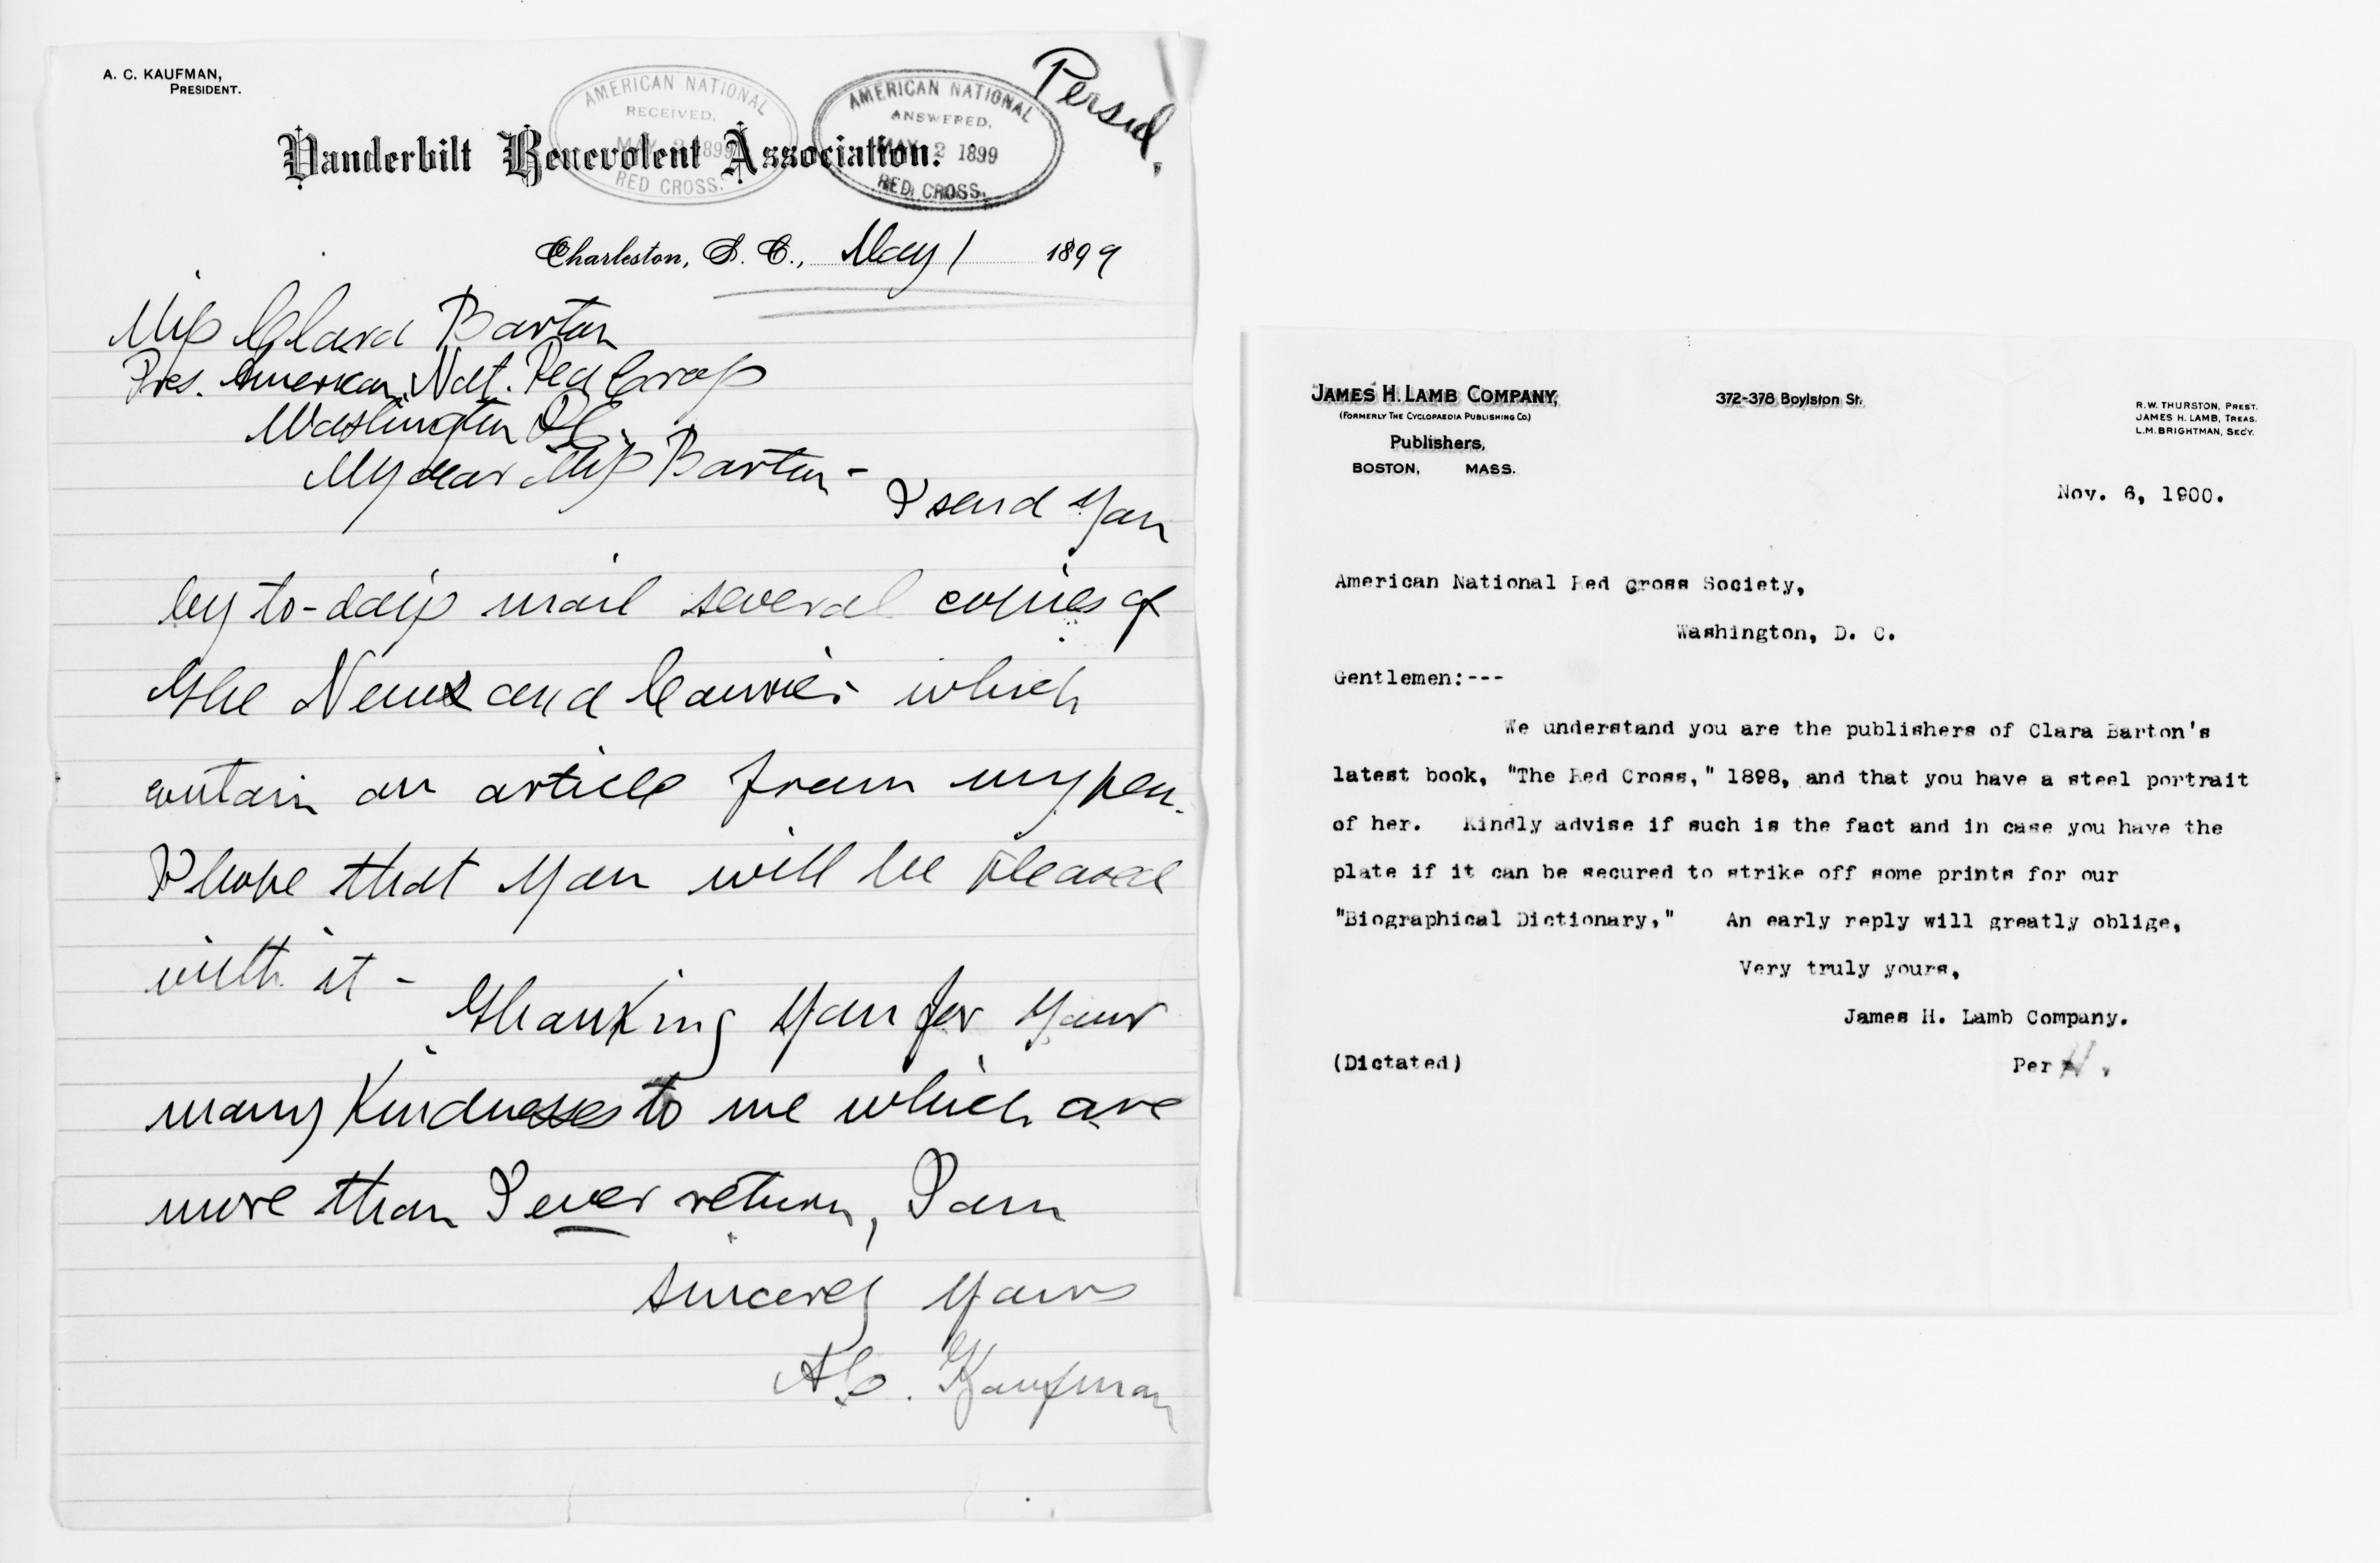 A. C. KAUFMAN,
PRESIDENT.
AMERICAN NATIONAL
RECEIVED,
MAY 2 1899
RED CROSS.
AMERICAN NATIONAL
ANSWERED,
MAY 2 1899
RED CROSS.
Persnl.
Vanderbilt Benevolent Association.
Charleston, S. C., May 1 1899
Miss Clara Barton
Pres. American Nat. Red Cross
Washington DC.
My dear Miss Barton -
I send you
by to-day's mail several copies of
The News and Courier which
contain an article from my pen.
I hope that you will be pleased
with it -
Thanking you for your
many kindnesses to me which are
more than I ever return, I am
Sincerely yours
A.C. Kaufman
JAMES H. LAMB COMPANY,
(FORMERLY THE CYCLOPAEDIA PUBLISHING CO.)
Publishers,
BOSTON, MASS.
372-378 Boylston St.
R.W. THURSTON, PREST.
JAMES H. LAMB, TREAS.
L.M. BRIGHTMAN, SEC'Y.
Nov. 6, 1900.
American National Red Cross Society,
Washington, D. C.
Gentlemen:---
We understand you are the publishers of Clara Barton's
latest book, "The Red Cross," 1898, and that you have a steel portrait
of her. Kindly advise if such is the fact and in case you have the
plate if it can be secured to strike off some prints for our
"Biographical Dictionary," An early reply will greatly oblige,
Very truly yours,
James H. Lamb Company.
(Dictated)
Per H.